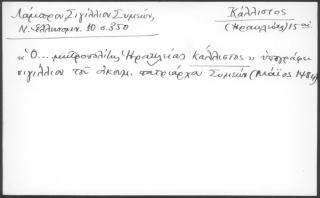 Λάμπρου, Σιγίλλιον Συμεών,
Ν. Ἑλληνομν. 10 σ. 350
Κάλλιστος
(Ἡρακλείας) 15ος
«Ὁ... μητροπολίτης Ἡρακλείας Κάλλιστος» ὑπογράφει
σιγίλλιον τοῦ οἰκουμ. πατριάρχου Συμεών (Μάϊος